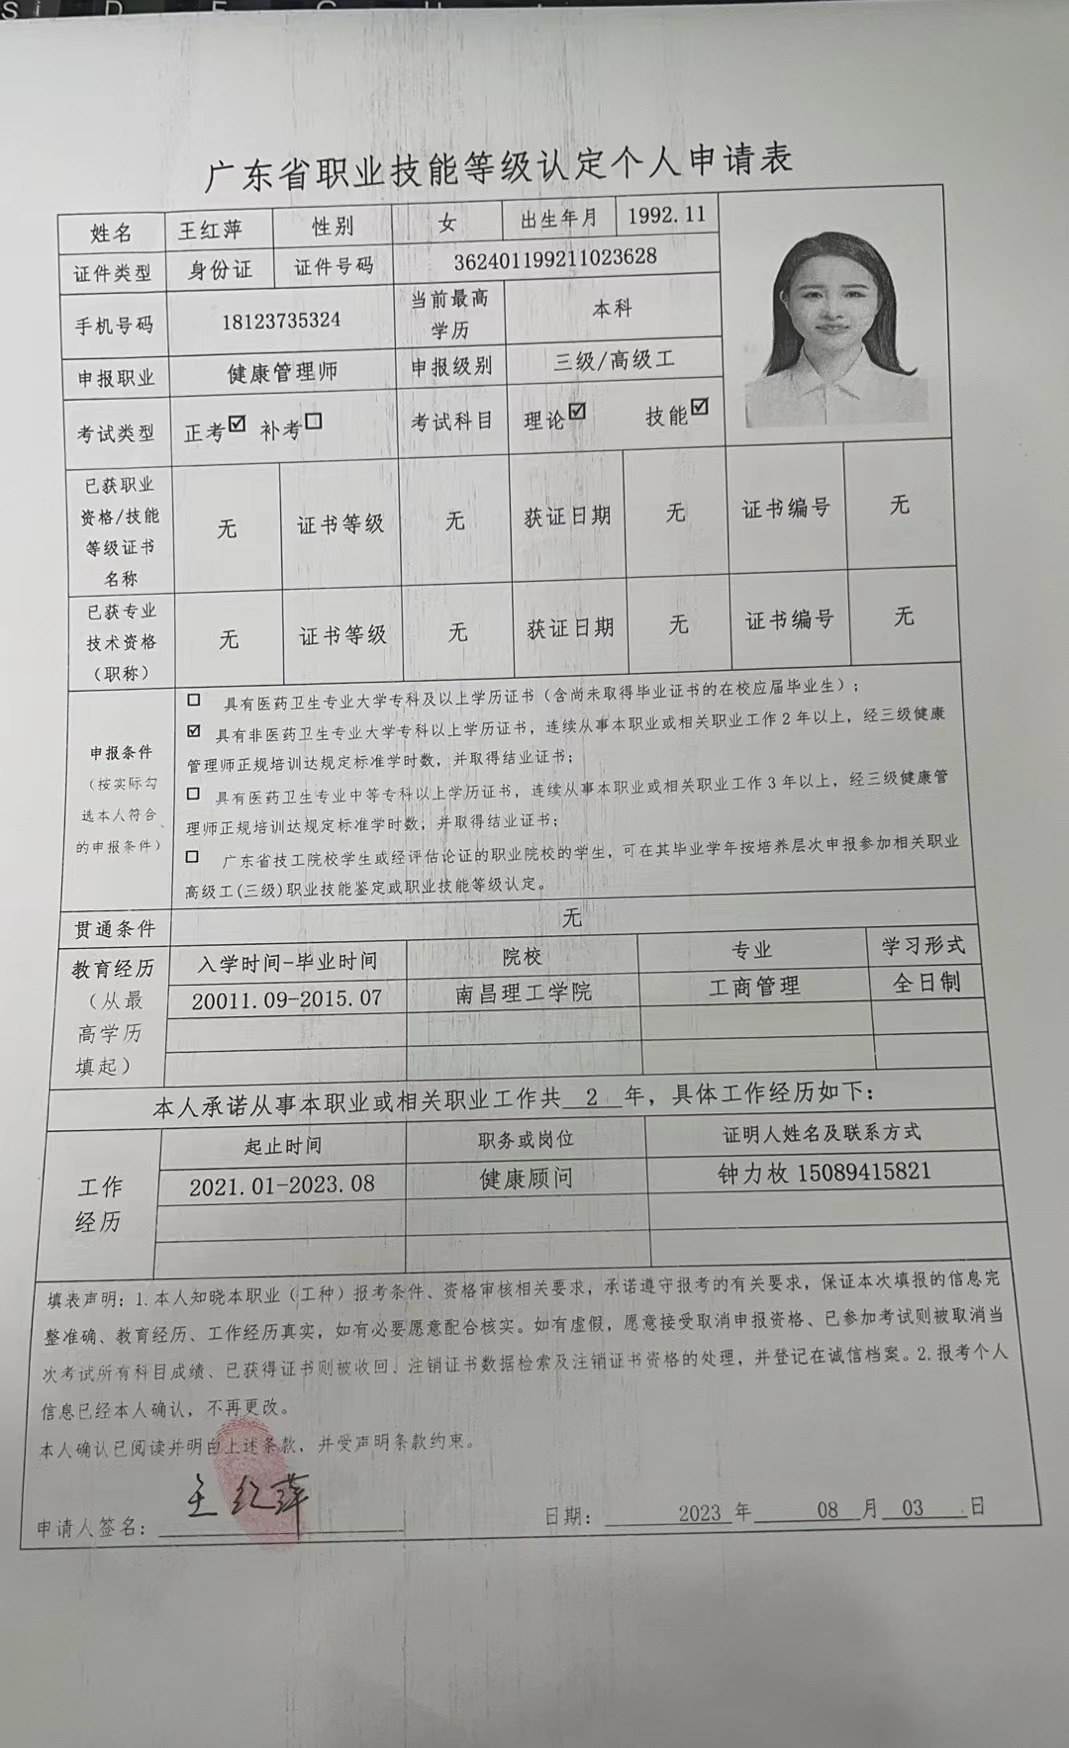 广东省职业技能等级认定个人申请表
姓名 王红萍 性别 女 出生年月 1992.11
证件类型 身份证 证件号码 362401199211023628
手机号码 18123735324 当前最高学历 本科
申报职业 健康管理师 申报级别 三级/高级工
考试类型 正考☑ 补考☐ 考试科目 理论☑ 技能☑
已获职业资格/技能等级证书名称 无 证书等级 无 获证日期 无 证书编号 无
已获专业技术资格（职称） 无 证书等级 无 获证日期 无 证书编号 无
申报条件（按实际勾选本人符合的申报条件）
☐ 具有医药卫生专业大学专科及以上学历证书（含尚未取得毕业证书的在校应届毕业生）；
☑ 具有非医药卫生专业大学专科以上学历证书，连续从事本职业或相关职业工作2年以上，经三级健康
管理师正规培训达规定标准学时数，并取得结业证书；
☐ 具有医药卫生专业中等专科以上学历证书，连续从事本职业或相关职业工作3年以上，经三级健康管
理师正规培训达规定标准学时数，并取得结业证书；
☐ 广东省技工院校学生或经评估论证的职业院校的学生，可在其毕业学年按培养层次申报参加相关职业
高级工(三级)职业技能鉴定或职业技能等级认定。
贯通条件 无
教育经历（从最高学历填起） 入学时间-毕业时间 院校 专业 学习形式
20011.09-2015.07 南昌理工学院 工商管理 全日制
本人承诺从事本职业或相关职业工作共 2 年，具体工作经历如下：
工作经历 起止时间 职务或岗位 证明人姓名及联系方式
2021.01-2023.08 健康顾问 钟力枚 15089415821
填表声明：1.本人知晓本职业（工种）报考条件、资格审核相关要求，承诺遵守报考的有关要求，保证本次填报的信息完
整准确、教育经历、工作经历真实，如有必要愿意配合核实。如有虚假，愿意接受取消申报资格、已参加考试则被取消当
次考试所有科目成绩、已获得证书则被收回、注销证书数据检索及注销证书资格的处理，并登记在诚信档案。2.报考个人
信息已经本人确认，不再更改。
本人确认已阅读并明白上述条款，并受声明条款约束。
申请人签名： 王红萍 日期： 2023 年 08 月 03 日